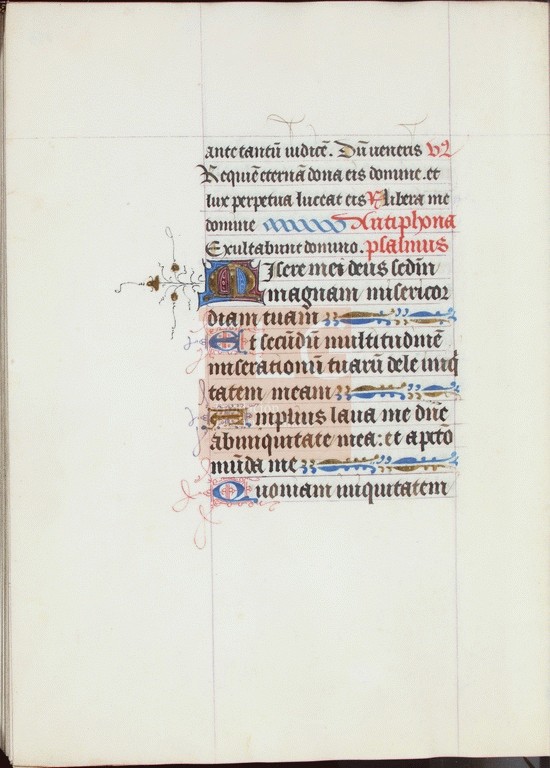 ante tantū iudicē. Dū ueneris v2
Requiē eternā dona eis domine. et
lux perpetua luceat eis R Libera me
domine Antiphona
Exultabunt domino. psalmus
Misere mei deus sedīn
magnam misericor
diam tuam
Et secūdū multitudinē
miserationū tuarū dele iniq̄
tatem meam
Amplius laua me dn̄e
ab iniquitate mea: et a pctō
mūda me
Quoniam iniquitatem